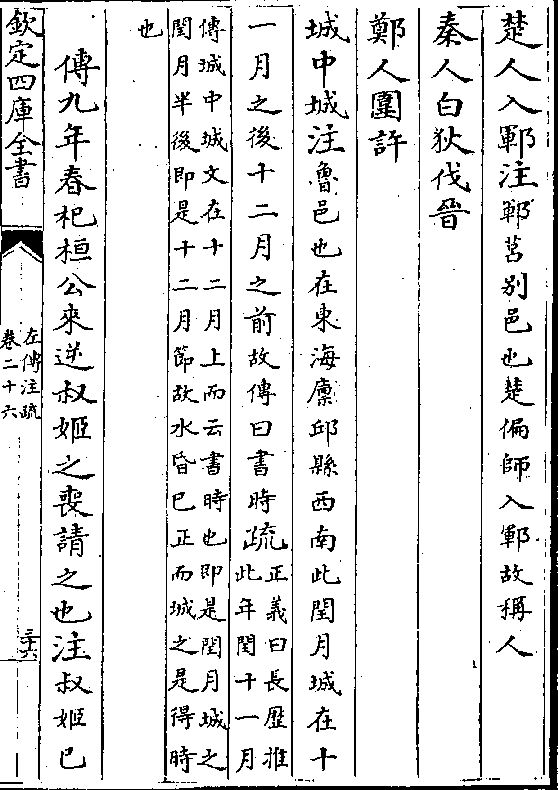 楚人入鄆注鄆莒别邑也楚偏師入鄆故稱人
秦人白狄伐晉
鄭人圍許
城中城注魯邑也在東海廩邱縣西南此閏月城在十
一月之後十二月之前故傳曰書時疏正義曰長歴推
此年閏十一月
傳城中城文在十二月上而云書時也即是閏月城之
閏月半後即是十二月節故水昏巳正而城之是得時
也
傳九年春杞桓公來逆叔姬之喪請之也注叔姬巳
欽定四庫全書
左傳注疏
卷二十六
三十六